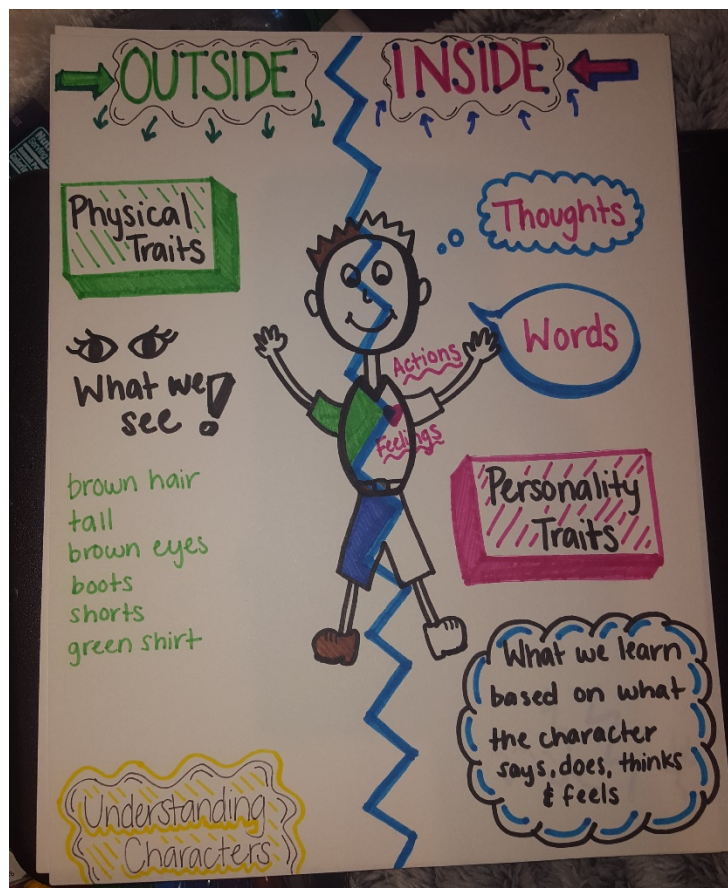 OUTSIDE
INSIDE
Physical
Traits
What we
see!
brown hair
tall
brown eyes
boots
shorts
green shirt
Understanding
Characters
Thoughts
Words
Actions
Feelings
Personality
Traits
What we learn
based on what
the character
says, does, thinks
& feels